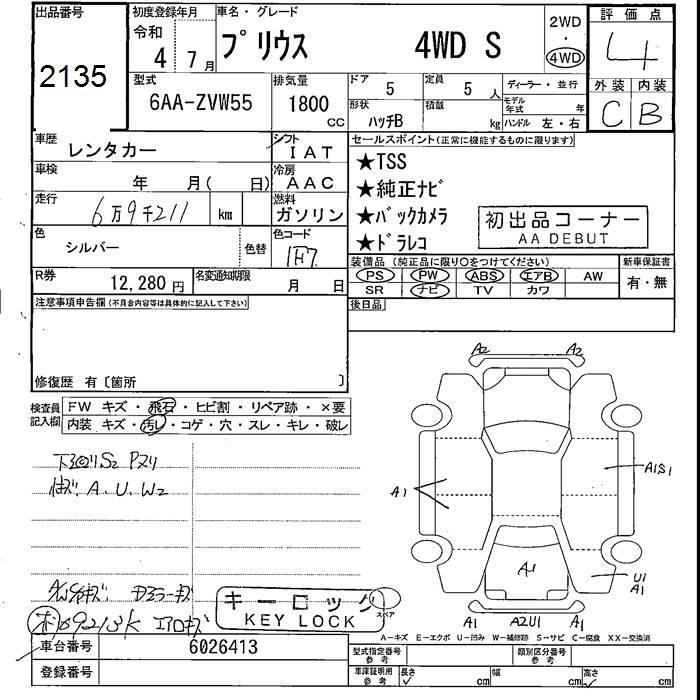 出品番号
2135
初度登録年月
令和
4年 7月
車名・グレード
プリウス 4WD S
2WD
・
4WD
評価点
4
外装 内装
C B
型式
6AA-ZVW55
排気量
1800 CC
ドア
5
定員
5 人
形状
ハッチB
積載
kg
ディーラー・並行
モデル年式 年
ハンドル 左・右
車歴
レンタカー
シフト
IAT
車検
年 月( 日)
冷房
AAC
走行
6万9千211 km
燃料
ガソリン
色
シルバー
色替
色コード
1F7
R券
12,280円
名変通知期限
月 日
セールスポイント(正常に機能するものに限ります)
★TSS
★純正ナビ
★バックカメラ
★ドラレコ
初出品コーナー
AA DEBUT
装備品 (純正品に限り○をつけてください)
PS PW ABS エアB AW
SR ナビ TV カワ
新車保証書
有・無
後日品
注意事項申告欄(不具合内容等は具体的に記入して下さい)
修復歴 有〔箇所 〕
検査員記入欄
FW キズ・飛石・ヒビ割・リペア跡・×要
内装 キズ・汚レ・コゲ・穴・スレ・キレ・破レ
A.U.W2
キーロック
KEY LOCK
スペア
A2 A2
A1
A1S1
A1
U1
A1
A1 A2U1 A1
A-キズ E-エクボ U-凹み W-補修跡 S-サビ C-腐食 XX-交換済
車台番号
6026413
登録番号
型式指定番号
参考
類別区分番号
参考
車庫証明用
参考
長さ cm
幅 cm
高さ cm